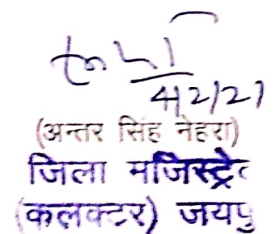 4/2/21
(अन्तर सिंह नेहरा)
जिला मजिस्ट्रेट
(कलक्टर) जयपु